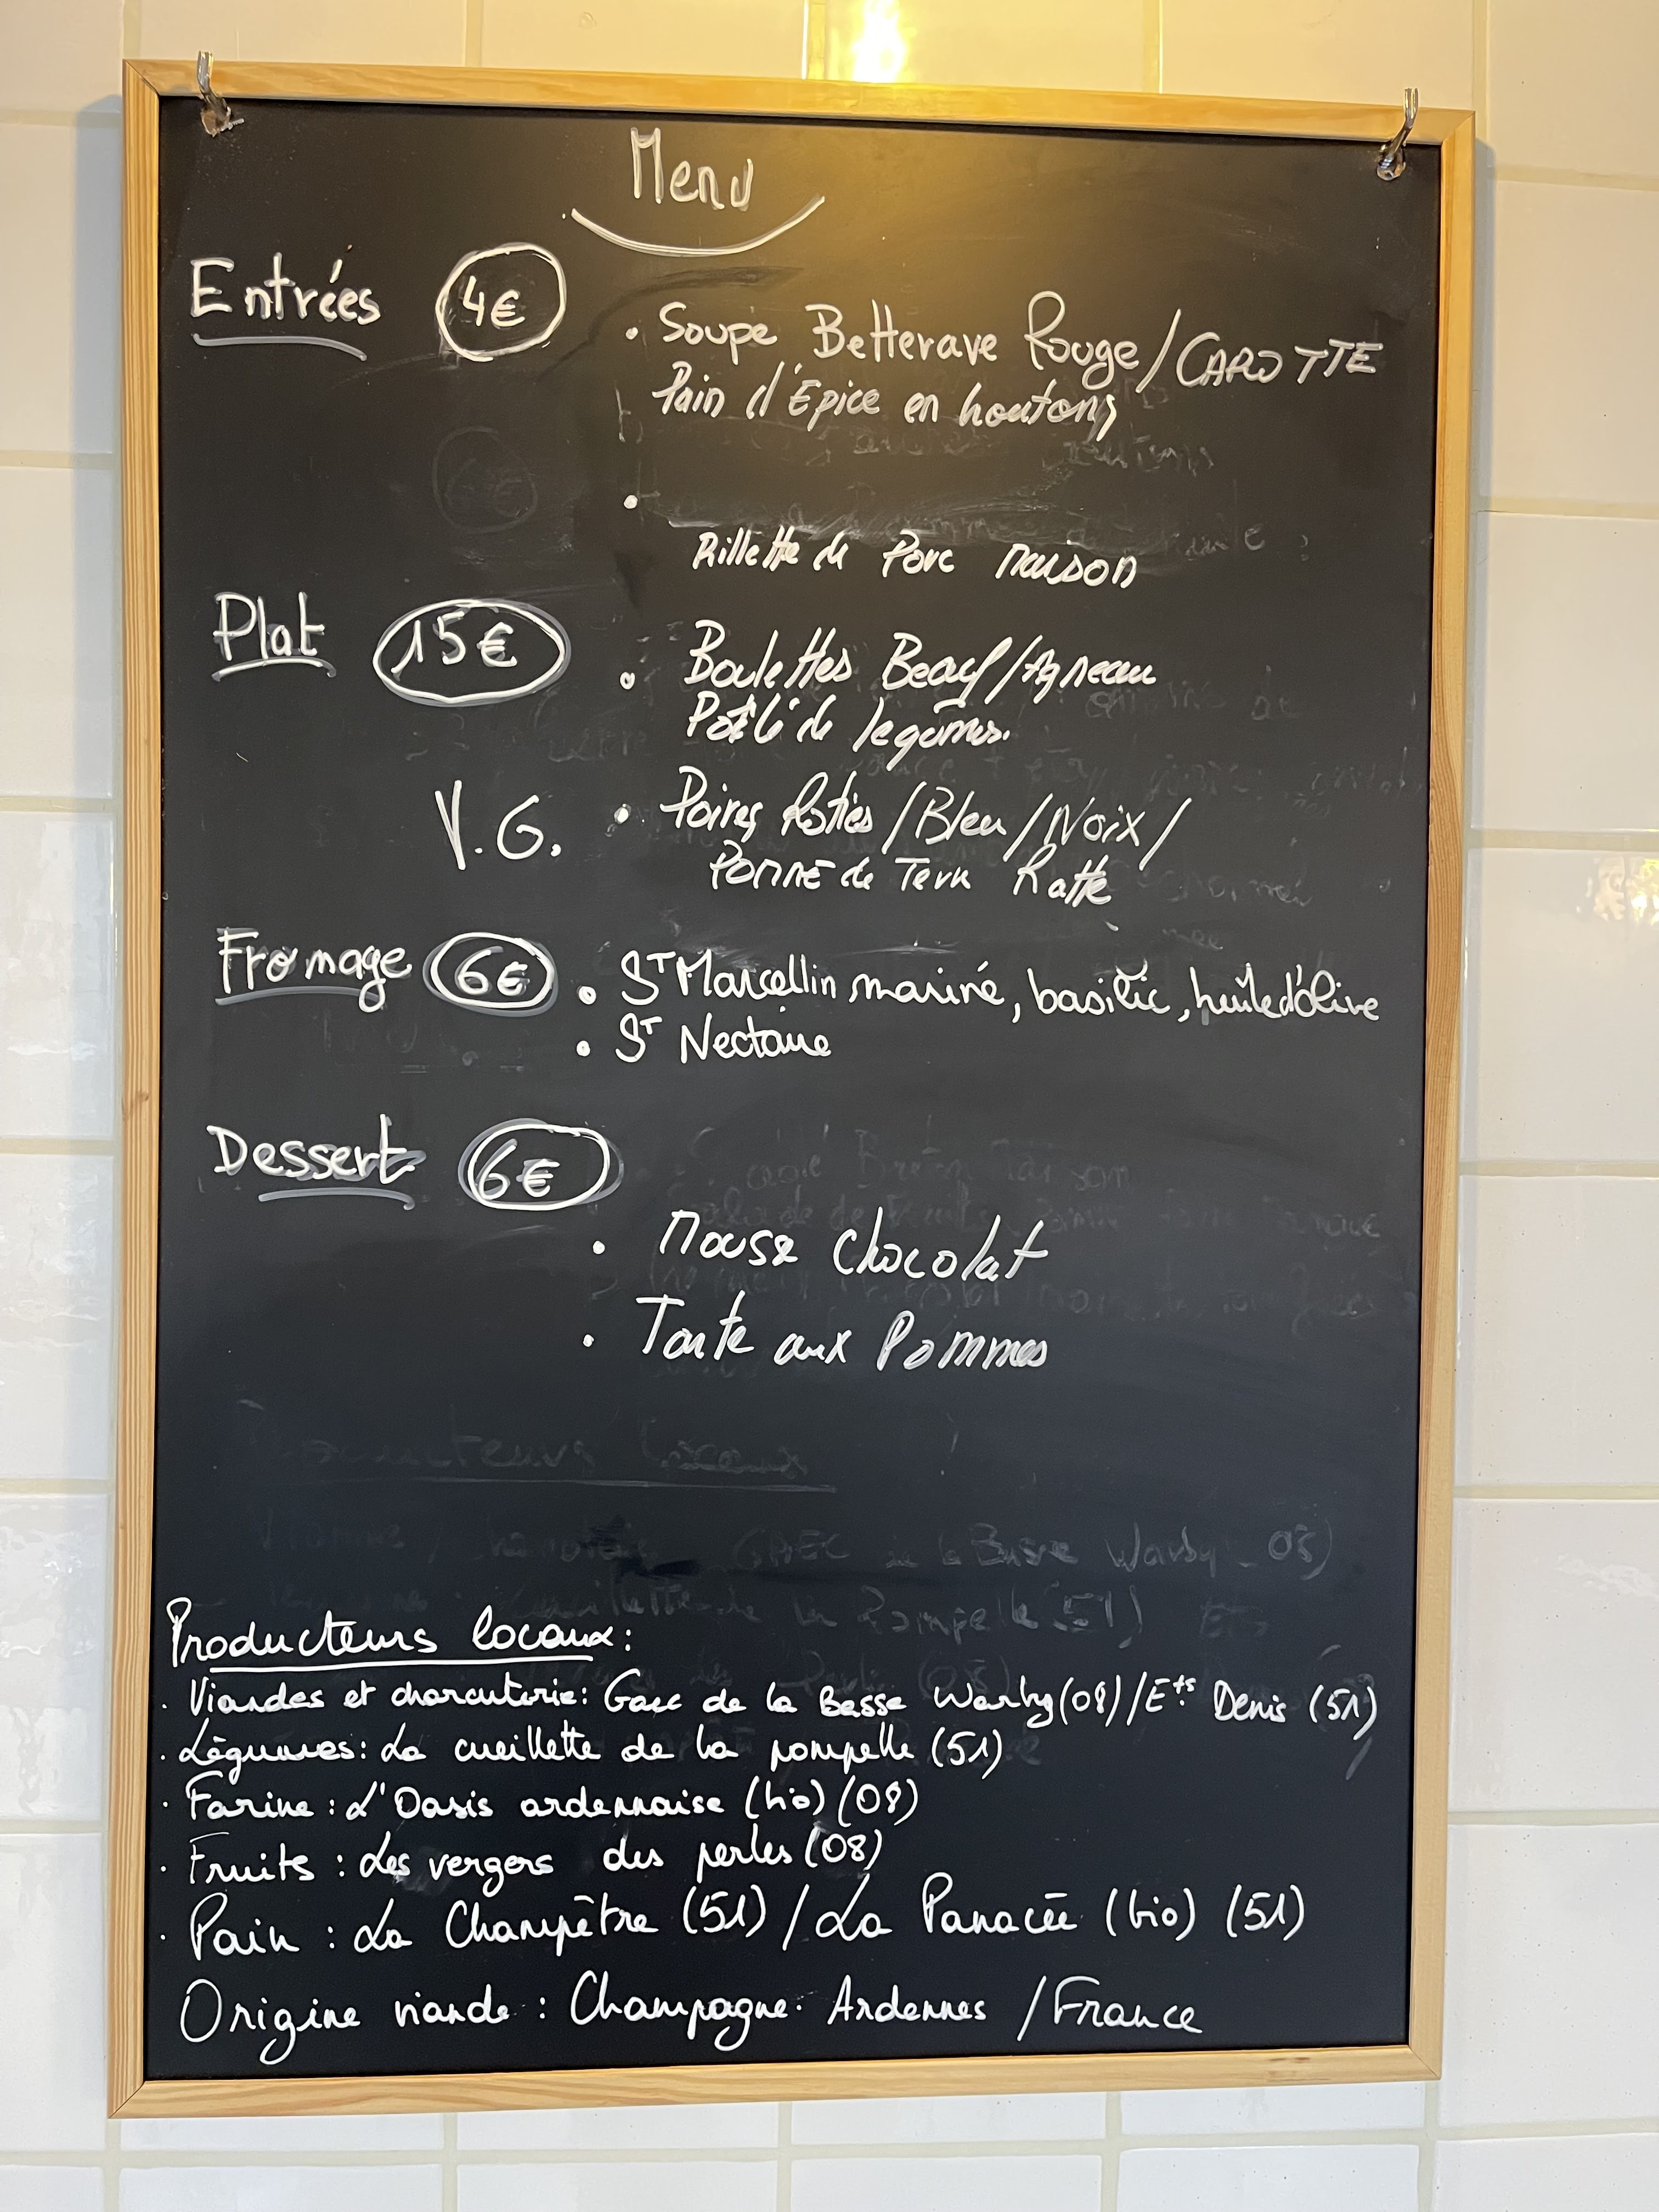 Menu
Entrées 4€
• Soupe Betterave Rouge/CAROTTE
Pain d'Epice en
•
Rillette de Porc maison
Plat 15€
• Boulettes Beouf/Agneau
de légumes.
V.G. • Poires Roties/Bleu/Noix/
POMME de Terre Ratte
Fromage 6€ • Sᵀ Marcellin mariné, basilic, huile d'olive
• Sᵀ Nectaire
Dessert 6€
• Mousse Chocolat
• Tarte aux Pommes
Producteurs locaux:
. Viandes et charcuterie: Gaec de la Basse Warby (08)/Eᵗˢ Denis (51)
. Légumes: La cueillette de la pompelle (51)
. Farine: L'Oasis ardennaise (bio) (08)
. Fruits: Les vergers des perles (08)
. Pain: La Champêtre (51)/La Panacée (bio) (51)
Origine viande: Champagne-Ardennes/France